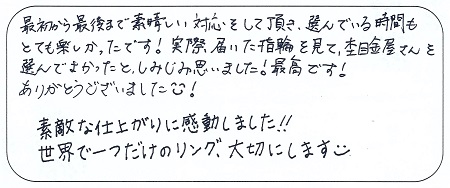 最初から最後まで素晴しい対応をして頂き、選んでいる時間も
とても楽しかったです！実際届いた指輪を見て、杢目金屋さんを
選んでよかったと、しみじみ思いました！最高です！
ありがとうございました☺！
素敵な仕上がりに感動しました!!
世界で一つだけのリング、大切にします☺